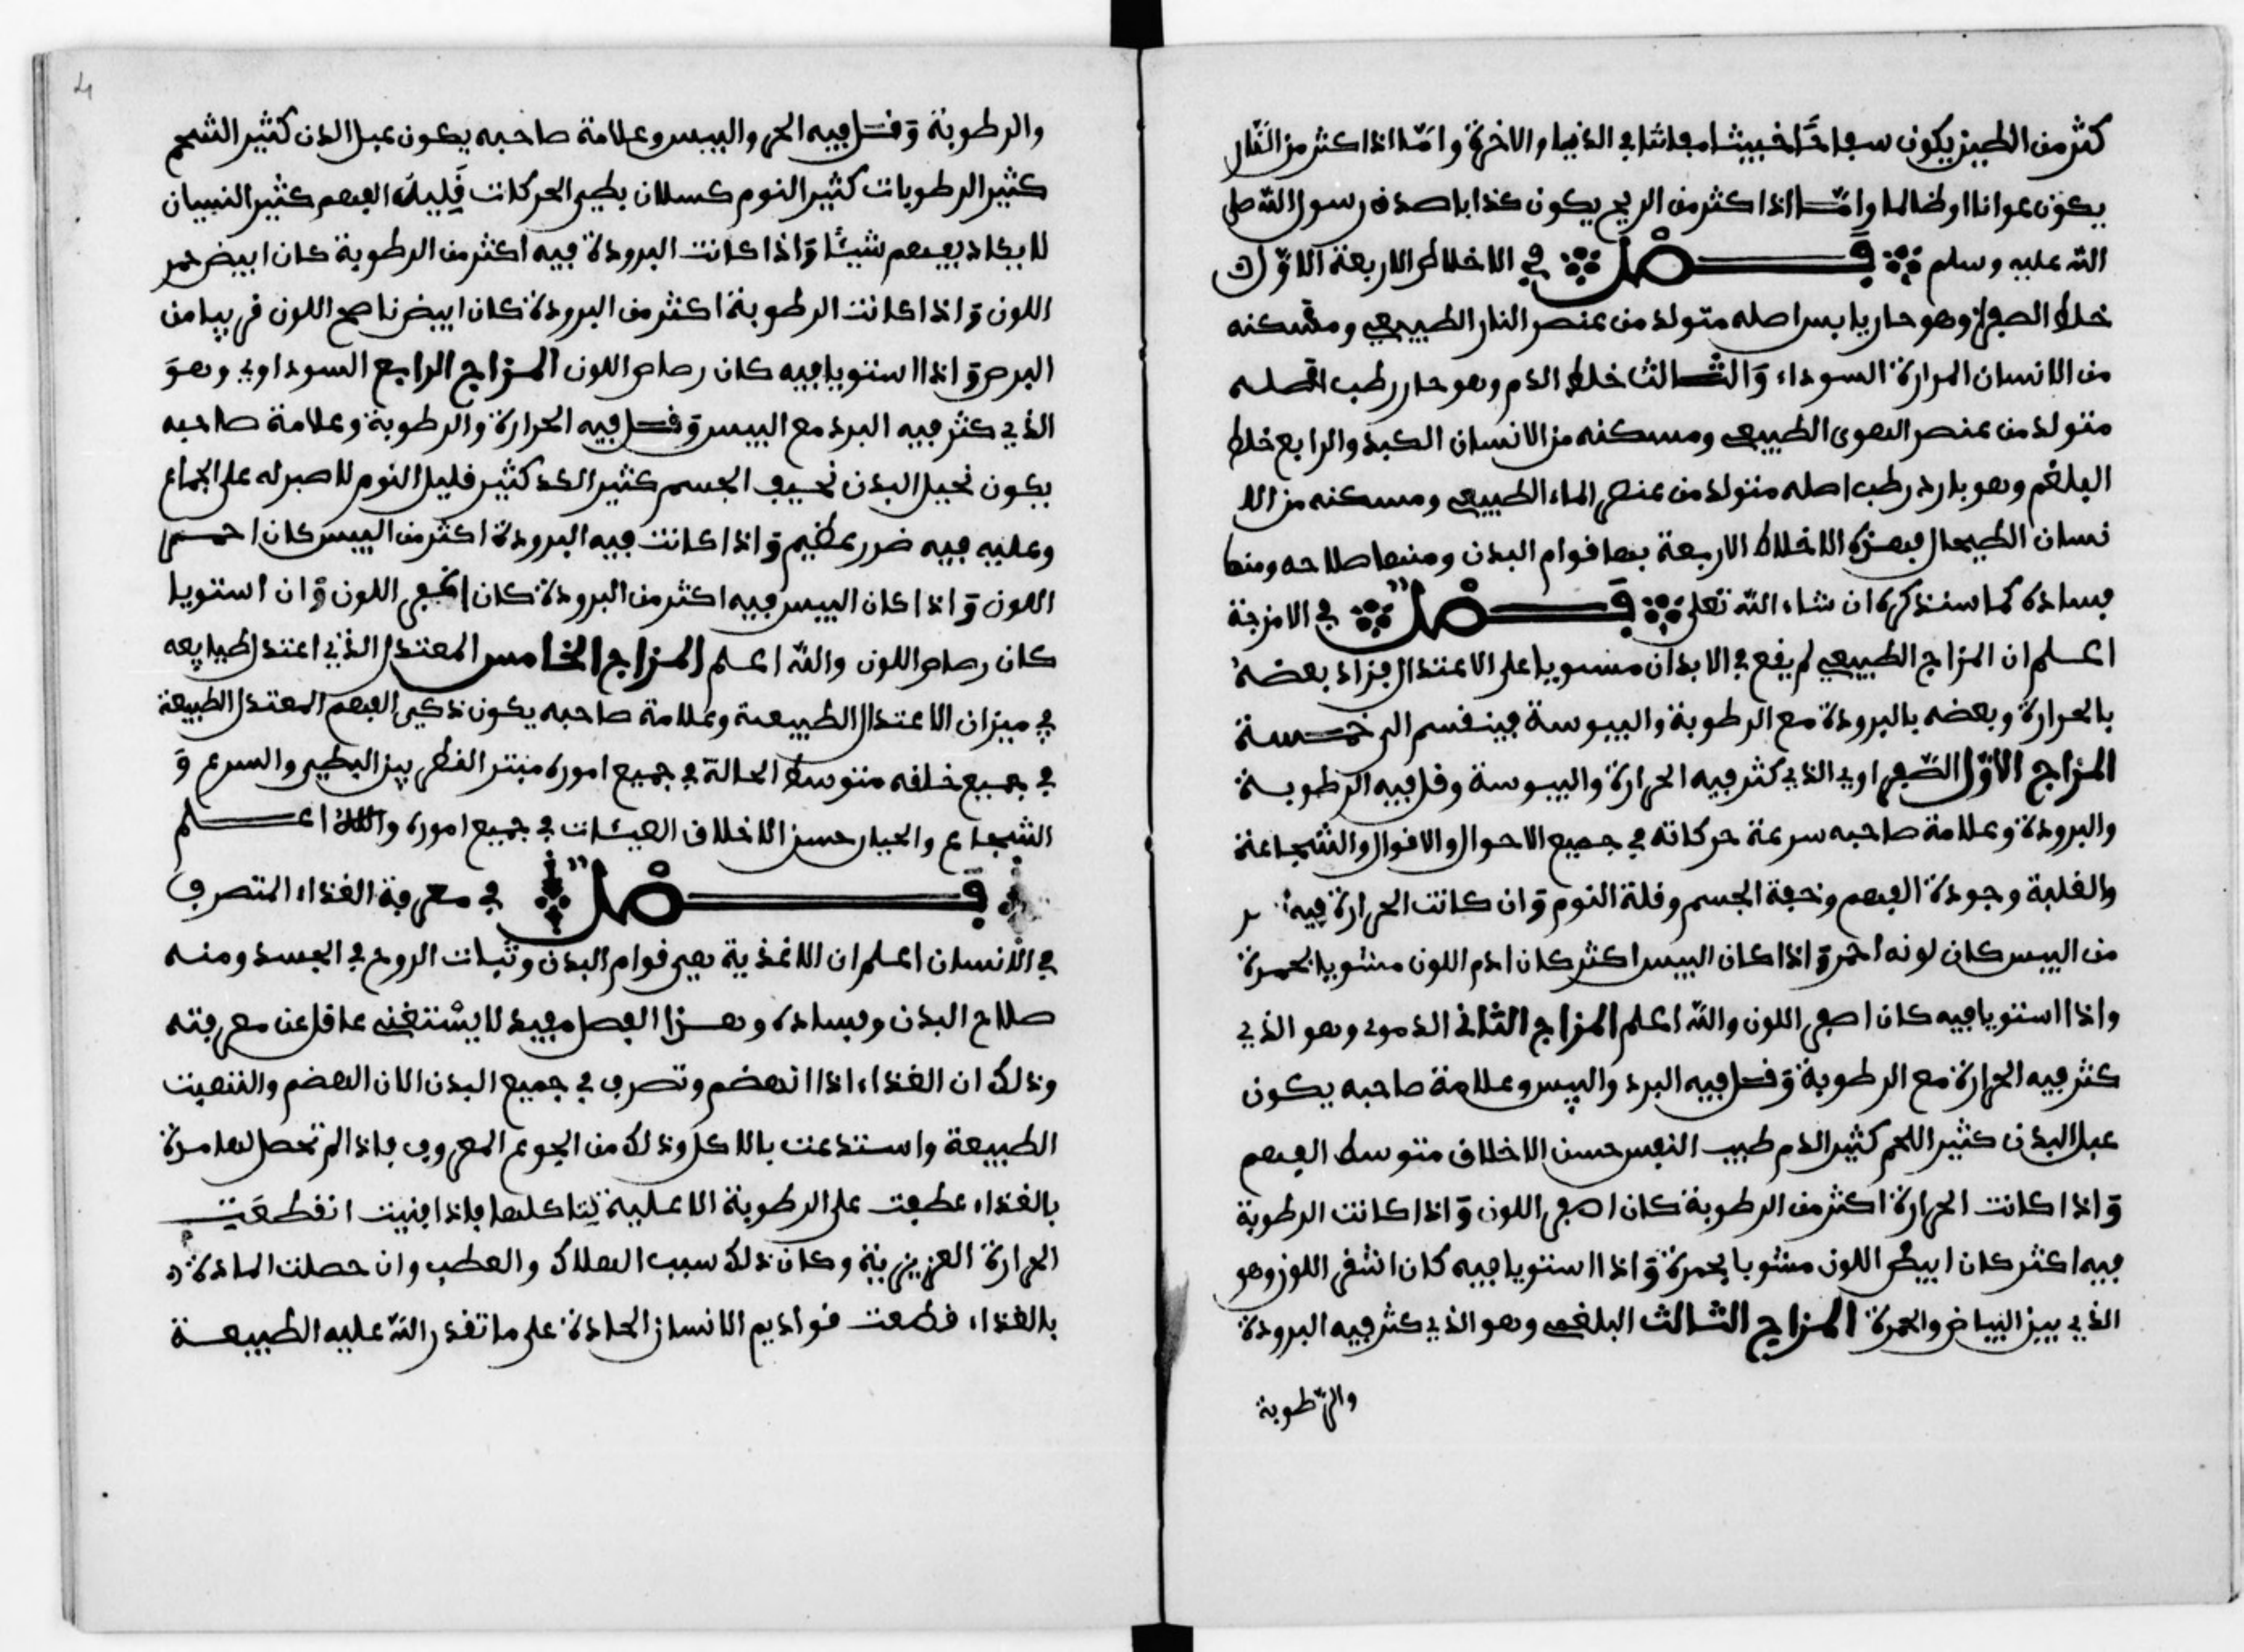 كثر من الطين يكون سفاحا خبيثا في الدنيا والاخرة واما اذا كثر من النار
يكون عوانا او ظالما واما اذا كثر من الريح يكون كذابا صدق رسول الله صلى
الله عليه وسلم فصل في الاخلاط الاربعة الاول
خلط الصفرا وهو حار يابس اصله متولد من عنصر النار الطبيعي ومسكنه
من الانسان المرارة السوداء والثالث خلط الدم وهو حار رطب اصله
متولد من عنصر الهوى الطبيعي ومسكنه من الانسان الكبد والرابع خلط
البلغم وهو بارد رطب اصله متولد من عنصر الماء الطبيعي ومسكنه من الا
نسان الطيحال فهذه الاخلاط الاربعة بها قوام البدن ومنها صلاحه ومنها
فساده كما سنذكره ان شاء الله تعلى فصل في الامزجة
اعلم ان المزاج الطبيعي لم يقع في الابدان مستويا على الاعتدال فزاد بعضه
بالحرارة وبعضه بالبرودة مع الرطوبة واليبوسة فينقسم الى خمسة
المزاج الاول الصفراوي الذي كثر فيه الحرارة واليبوسة وقل فيه الرطوبة
والبرودة وعلامة صاحبه سرعة حركاته في جميع الاحوال والاقوال والشجاعة
والغلبة وجودة الفهم ونحفة الجسم وقلة النوم وان كانت الحرارة فيه
من اليبس كان لونه احمر واذا كان اليبس اكثر كان ادم اللون مشوبا بحمرة
واذا استويا فيه كان اصفر اللون والله اعلم المزاج الثاني الدموي وهو الذي
كثر فيه الحرارة مع الرطوبة وقل فيه البرد واليبس وعلامة صاحبه يكون
عبل البدن كثير اللحم كثير الدم طيب النفس حسن الاخلاق متوسط الفهم
واذا كانت الحرارة اكثر من الرطوبة كان اصفر اللون واذا كانت الرطوبة
فيه اكثر كان ابيض اللون مشوبا بحمرة واذا استويا فيه كان اشقر اللون وهو
الذي بين البياض والحمرة المزاج الثالث البلغمي وهو الذي كثر فيه البرودة
والرطوبة
والرطوبة وقل فيه الحر واليبس وعلامة صاحبه يكون عبل البدن كثير الشحم
كثير الرطوبات كثير النوم كسلان بطيء الحركات قليل الفهم كثير النسيان
لا يكاد يفهم شيئا واذا كانت البرودة فيه اكثر من الرطوبة كان ابيض
اللون واذا كانت الرطوبة اكثر من البرودة كان ابيض ناصح اللون قريبا من
البرص واذا استويا فيه كان رصاص اللون المزاج الرابع السوداوي وهو
الذي كثر فيه البرد مع اليبس وقل فيه الحرارة والرطوبة وعلامة صاحبه
يكون نحيل البدن نحيف الجسم كثير الكد كثير قليل النوم لا صبر له على الجماع
وعليه فيه ضرر عظيم واذا كانت فيه البرودة اكثر من اليبس كان
اللون واذا كان اليبس فيه اكثر من البرودة كان اللون وان استويا
كان رصاص اللون والله اعلم المزاج الخامس المعتدل الذي اعتدل طبايعه
في ميزان الاعتدال الطبيعة وعلامة صاحبه يكون ذكي الفهم المعتدل الطبيعة
في جميع خلقه متوسط الحالة في جميع اموره بين البطيء والسرع و
الشجاع والجبار حسن الاخلاق الهيئات في جميع اموره والله اعلم
فصل في معرفة الغذاء المتصرف
في الانسان اعلم ان الاغذية هي قوام البدن وثبات الروح في الجسد ومنه
صلاح البدن وفساده وهذا الفصل مفيد لا يستغنى عاقل عن معرفته
وذلك ان الغذاء اذا انهضم وتصرف في جميع البدن الان الهضم
الطبيعة واستدعت بالاكل وذلك من الجوع المعروف فاذا لم تحصل لها مرة
بالغذاء عطفت على الرطوبة الاصلية تتاكلها فاذا فنيت انقطعت
الحرارة الغريزية وكان ذلك سبب الهلاك والعطب وان حصلت المادة
بالغذاء قطعت الانسان الحادة على ما تقدر الله عليه الطبيعة